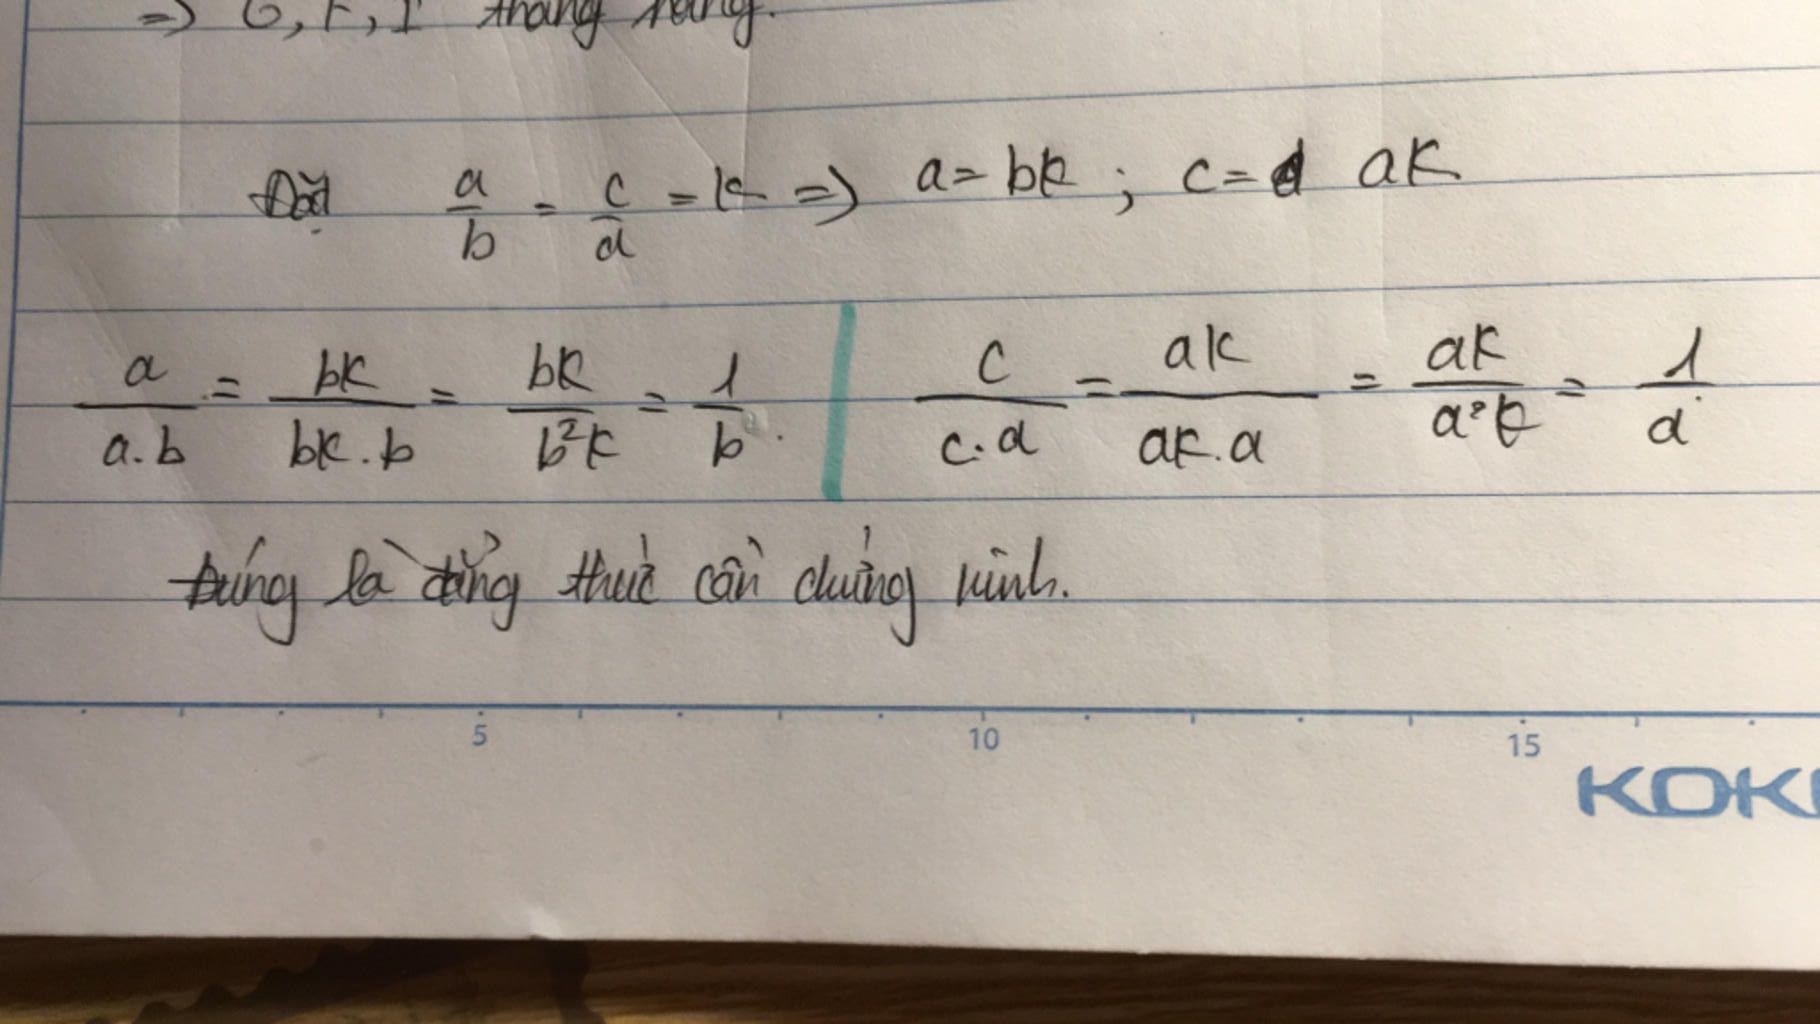 => G, F, I thẳng hàng.
Đặt a/b = c/d = k => a = bk ; c = d ak
a/a.b = bk/bk.b = bk/b²k = 1/b. | c/c.d = ak/ak.a = ak/a²k = 1/d
Đúng là đẳng thức cần chứng minh.
5 10 15
KOK